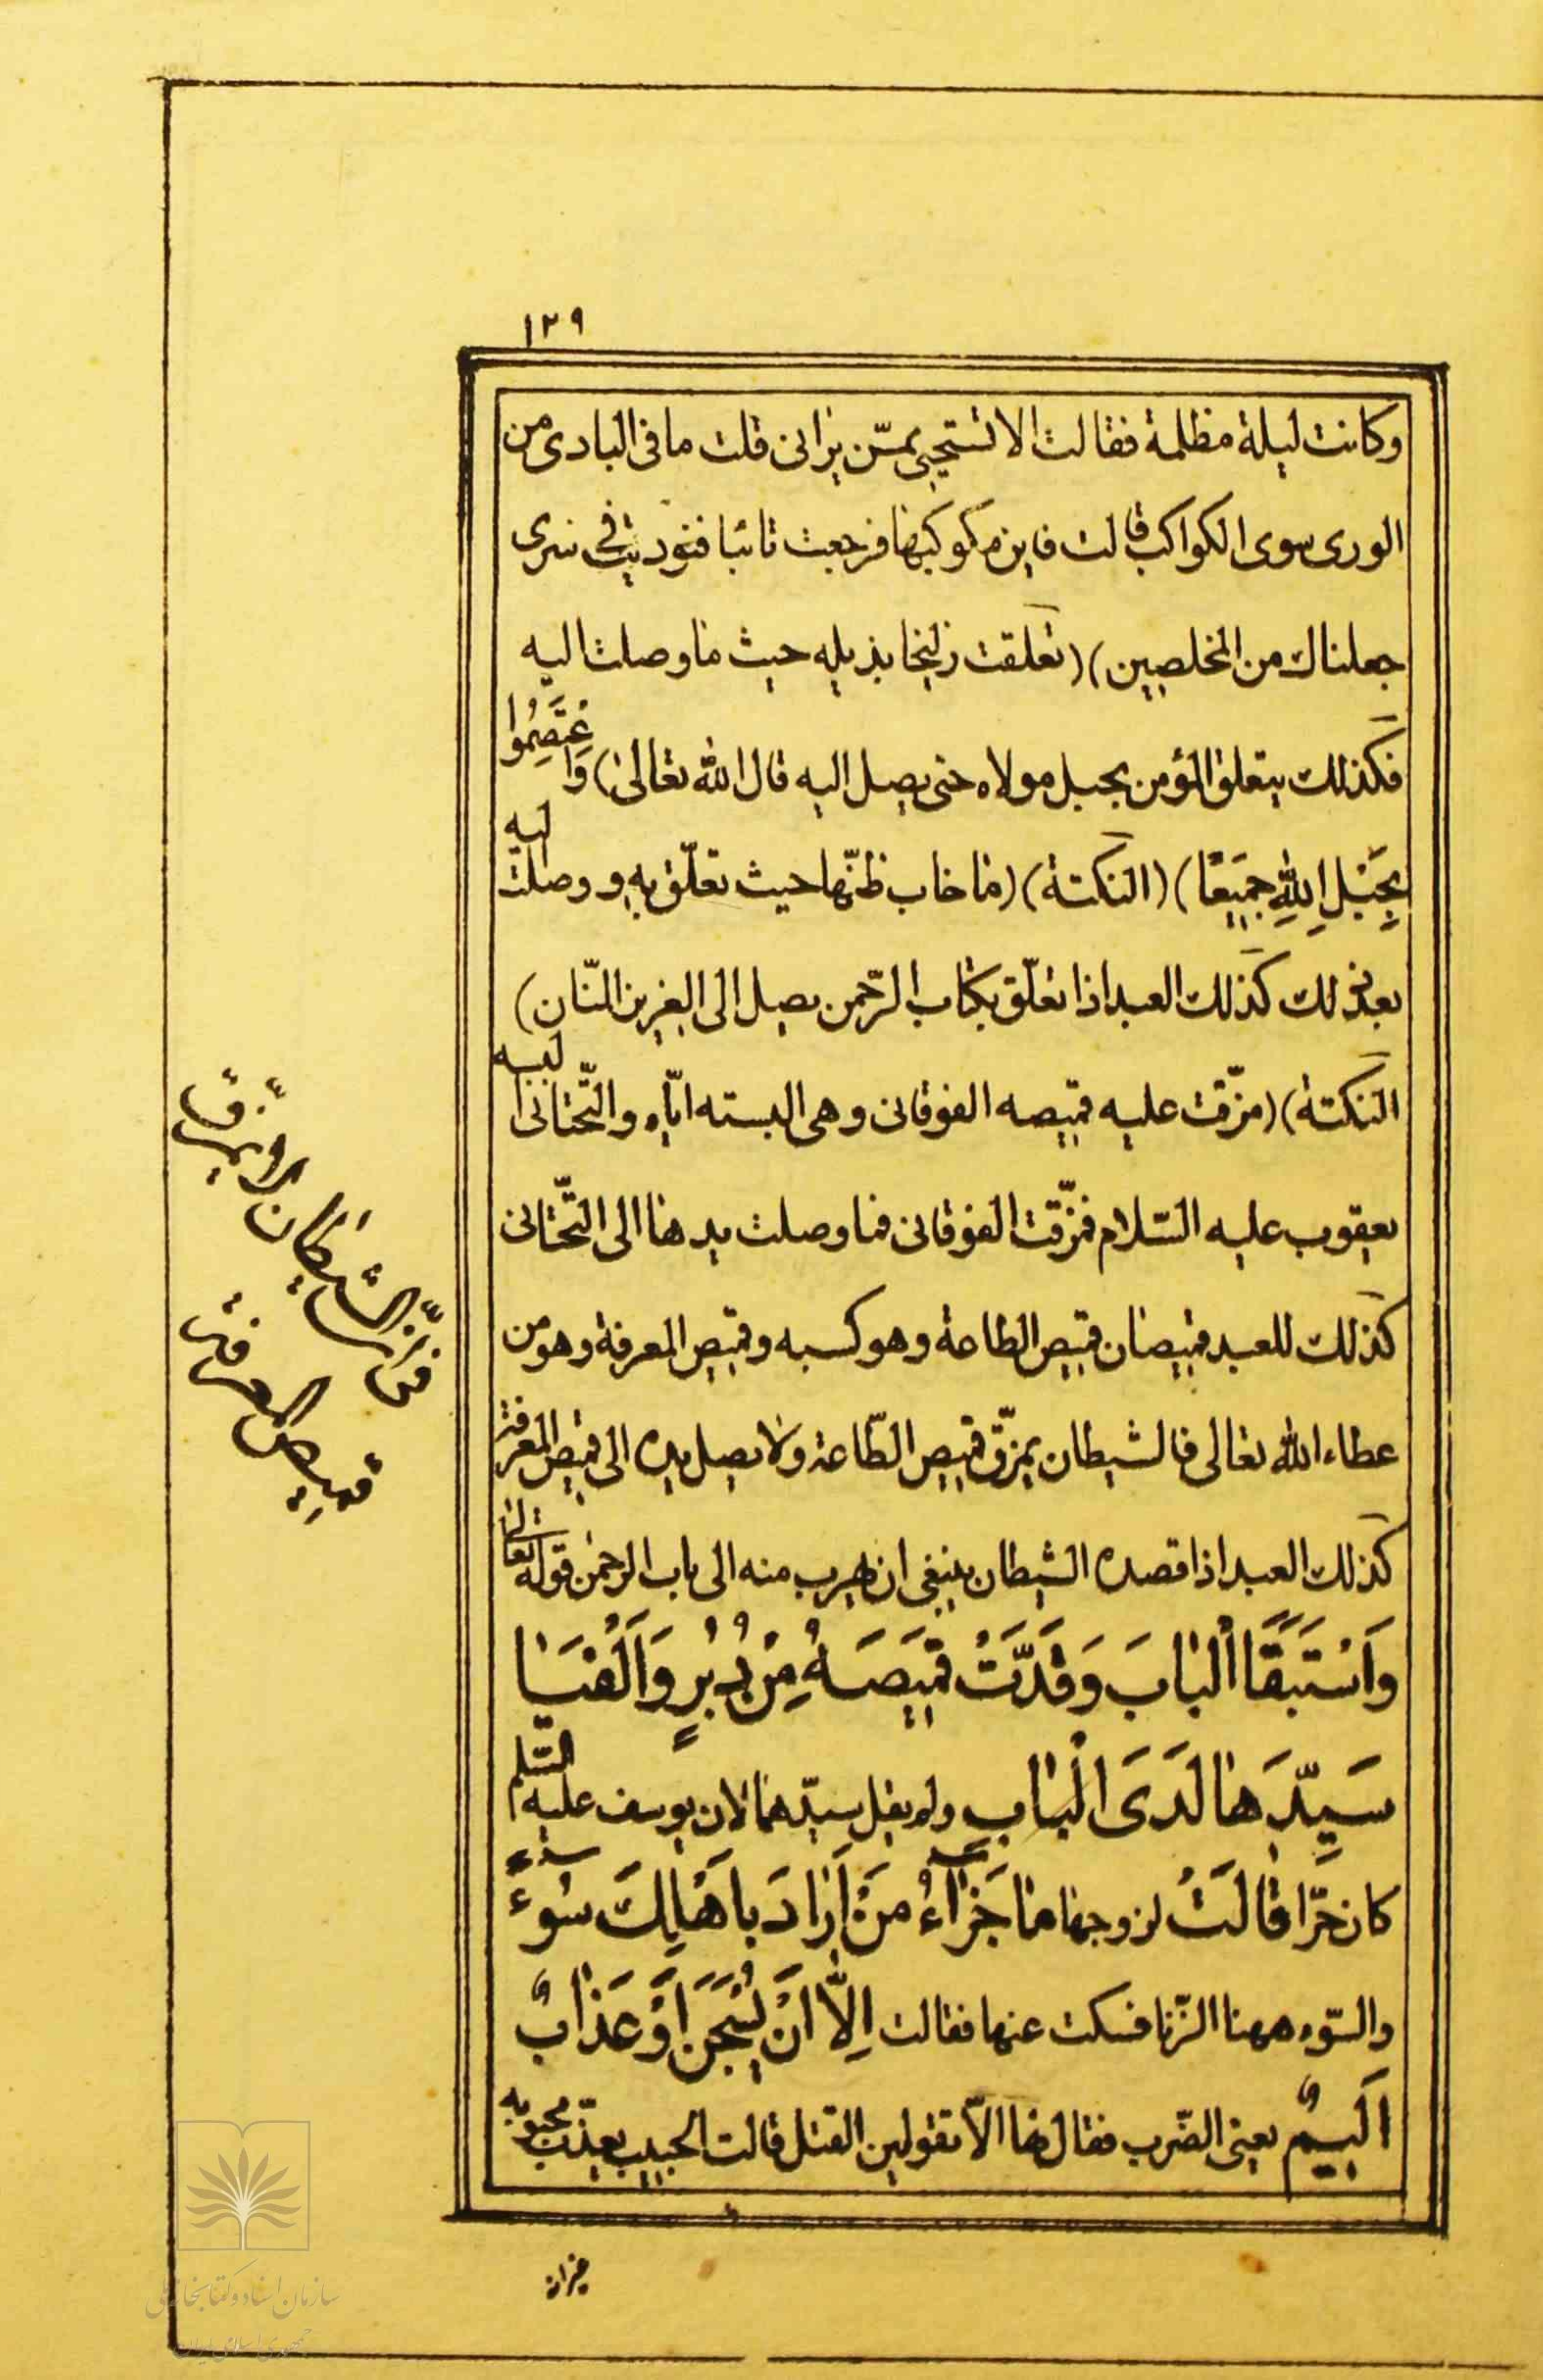 ١٢٩
وكانت ليلة مظلمة فقالت الا تستحيي ممّن يرانى قلت ما فى البادى من
الورى سوى الكواكب قالت فاين مكوكبها فرجعت تائبا فنوديت فى سرى
جعلناك من المخلصين) (تعلقت زليخا بذيله حيث ما وصلت اليه
فكذلك يتعلق المؤمن بحبل مولاه حتى يصل اليه قال الله تعالى) وَاعْتَصِمُوا
بِحَبْلِ اللّٰهِ جَمِيعًا) (النكتة) (ما خاب ظنّها حيث تعلّق به و وصلت اليه
بعد ذلك كذلك العبد اذا تعلّق بكتاب الرّحمن يصل الى العزيز المنّان)
النكتة) (مزّقت عليه قميصه الفوقانى وهى البسته ايّاه والتّحتانى البسه
يعقوب عليه السّلام فمزّقت الفوقانى فما وصلت يدها الى التّحتانى
كذلك للعبد قميصان قميص الطاعة وهو كسبه وقميص المعرفة وهو من
عطاء الله تعالى فالشيطان يمزّق قميص الطّاعة ولا يصل يده الى قميص المعرفة
كذلك العبد اذا قصده الشيطان ينبغى ان يهرب منه الى باب الرحمن قوله تعالى
وَاسْتَبَقَا الْبَابَ وَقَدَّتْ قَمِيصَهُ مِنْ دُبُرٍ وَاَلْفَيَا
سَيِّدَهَا لَدَى الْبَابِ ولم يقل سيّدهما لان يوسف عليه السّلم
كان حرّا قَالَتْ لزوجها مَا جَزَاءُ مَنْ اَرَادَ بِاَهْلِكَ سُوءً
والسّوء ههنا الزّنا فسكت عنها فقالت اِلَّا اَنْ يُسْجَنَ اَوْ عَذَابٌ
اَلِيمٌ يعنى الضّرب فقال لها الاّ تقولين القتل قالت الحبيب يعذّب محبوبه
الشيطان
قميص المعرفة
سازمان اسناد و کتابخانه ملی
جمهوری اسلامی ایران